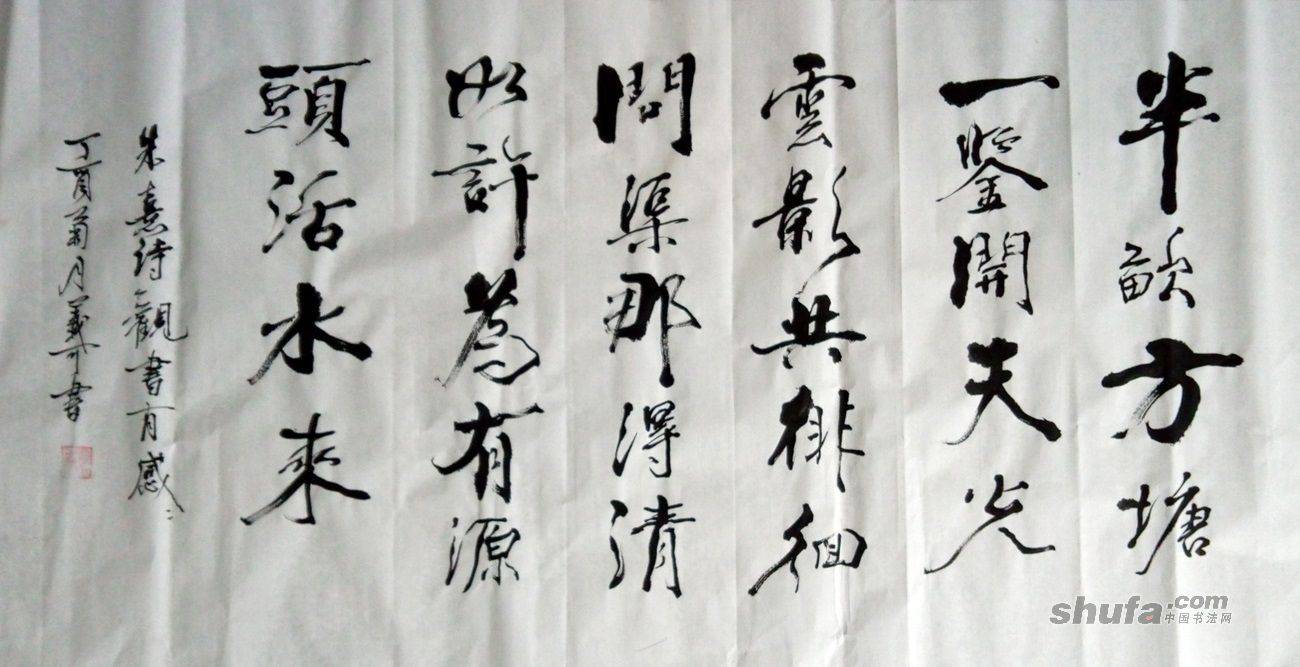 半畝方塘
一鑒開天光
雲影共徘徊
問渠那得清
如許為有源
頭活水來
朱熹詩觀書有感
丁酉菊月義可書
shufa.com
中国书法网